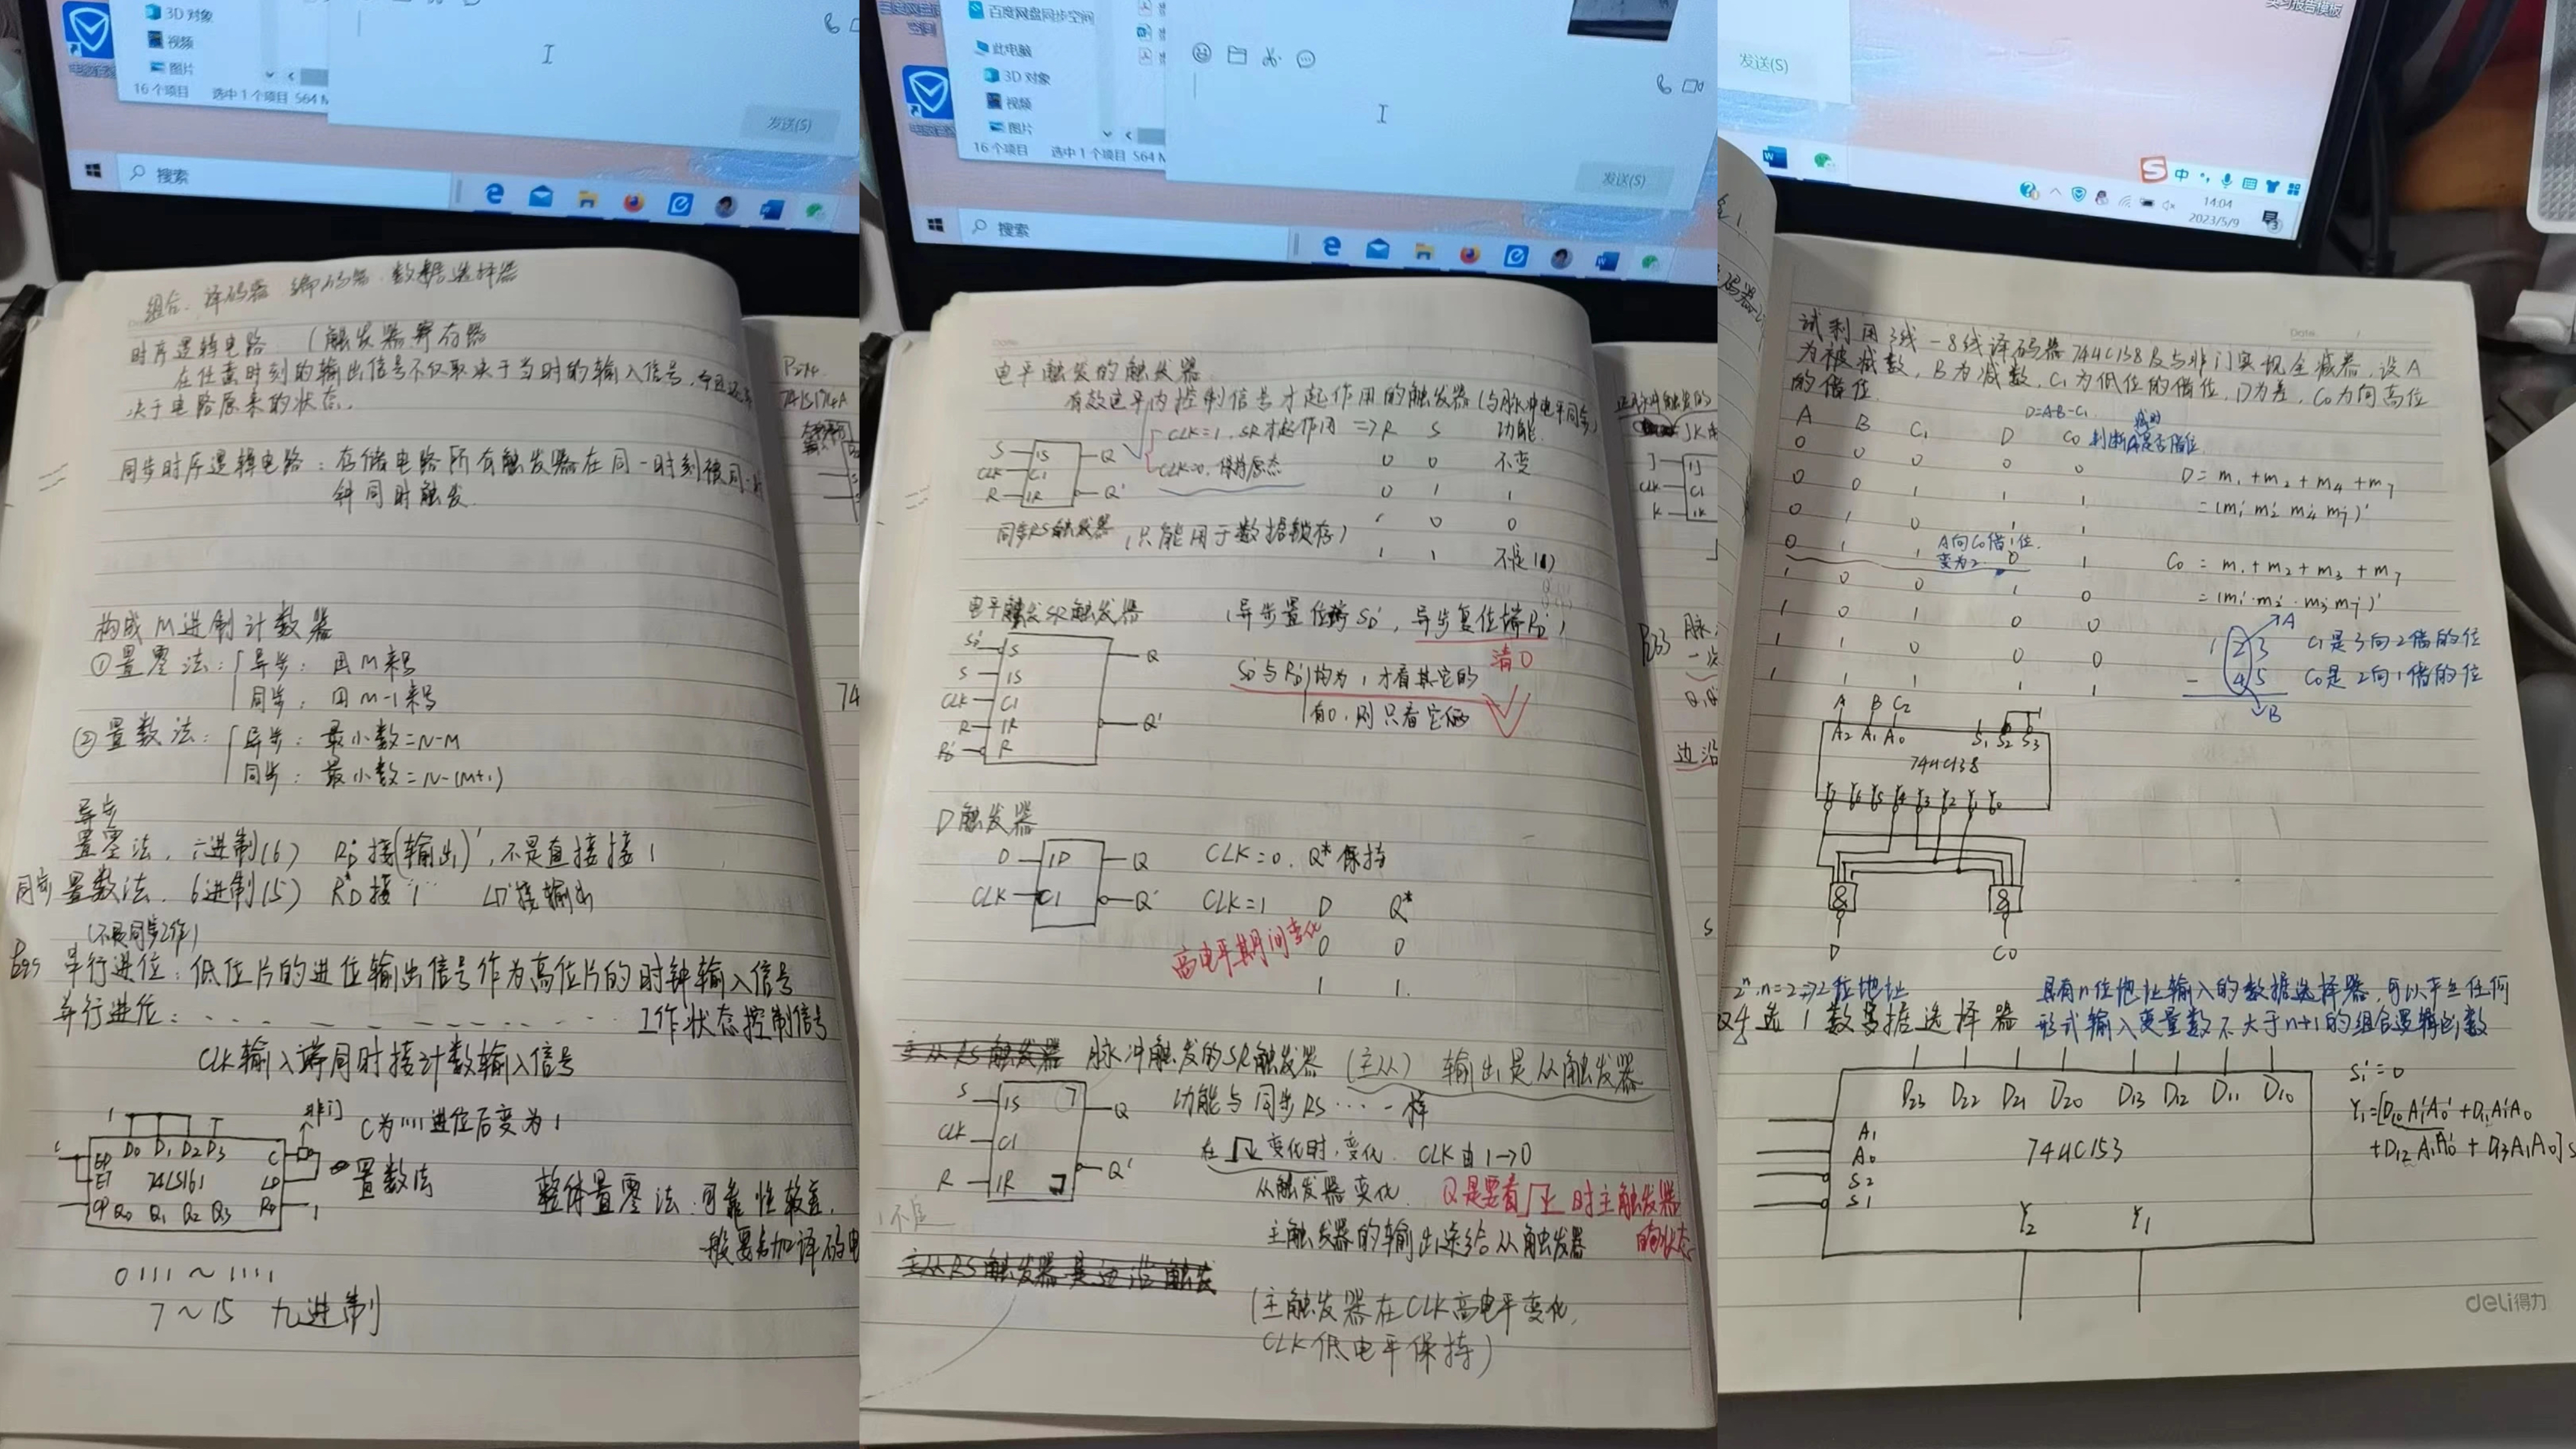 3D 对象
视频
图片
16 个项目 选中 1 个项目 564 M
发送(S)
搜索
组合. 译码器 编码器. 数据选择器
时序逻辑电路 (触发器 寄存器
在任意时刻的输出信号不仅取决于当时的输入信号,
决于电路原来的状态.
同步时序逻辑电路: 存储电路所有触发器在同一时刻被同一时
钟同时触发.
构成M进制计数器
①置零法: 异步: 用M来写
同步: 用M-1来写
②置数法: 异步: 最小数=N-M
同步: 最小数=N-(M+1)
异步
置零法, 六进制(6) RD'接(输出)', 不是直接接1
同步 置数法. 6进制(5) RD'接1 LD'接输出
(不是同步工作)
串行进位: 低位片的进位输出信号作为高位片的时钟输入信号
并行进位: 工作状态控制信号
CLK输入端同时接计数输入信号
1 非门 C为1111进位后变为1
EP D0 D1 D2 D3 C
ET 74LS161 LD
CP Q0 Q1 Q2 Q3 RD 1
置数法
整体置零法: 可靠性较差,
一般要另加译码电
0111~1111
7~15 九进制
P214
74LS174A
74
百度网盘同步空间
此电脑
3D 对象
视频
图片
16 个项目 选中 1 个项目 564 M
发送(S)
搜索
电平触发的触发器
有效电平内控制信号才起作用的触发器 (与脉冲电平同步)
CLK=1. SR才起作用 => R S 功能.
CLK=0. 保持原态 0 0 不变
0 1 1
1 0 0
1 1 不定(1)
S 1S Q
CLK C1
R 1R Q'
同步RS触发器 (只能用于数据锁存)
电平触发SR触发器 (异步置位端SD', 异步复位端RD')
清0
SD'与RD'均为1才看其它的
有0, 则只看它俩
SD' S
S 1S Q
CLK C1
R 1R Q'
RD' R
D触发器
D 1D Q CLK=0. Q*保持
CLK C1 Q' CLK=1 D Q*
高电平期间变化 0 0
1 1.
主从RS触发器 脉冲触发的SR触发器 (主从) 输出是从触发器
S 1S Q 功能与同步RS...一样
CLK C1 在 变化时, 变化. CLK由1→0
R 1R Q' 从触发器变化. Q是要看 时主触发器
的状态
主触发器的输出送给从触发器
主从RS触发器是边沿触发
(主触发器在CLK高电平变化,
CLK低电平保持)
JK
J 1J
CLK C1
K 1K
边沿
实习报告模板
发送(S)
中
14:04
2023/5/9
试利用3线-8线译码器74HC138及与非门实现全减器, 设A
为被减数, B为减数, C1为低位的借位, D为差, C0为向高位
的借位.
D=A-B-C1
A B C1 D C0 判断A是否借位.
0 0 0 0 0
0 0 1 1 1
0 1 0 1 1
0 1 1 0 1
1 0 0 1 0
1 0 1 0 0
1 1 0 0 0
1 1 1 1 1
A向C0借1位.
变为2.
D = m1+m2+m4+m7
= (m1' m2' m4' m7')'
C0 = m1+m2+m3+m7
= (m1'·m2'·m3' m7')'
A
1 2 3 C1是3向2借的位
- 4 5 C0是2向1借的位
B
A B C2 1
A2 A1 A0 S1 S2 S3
74HC138
Y7 Y6 Y5 Y4 Y3 Y2 Y1 Y0
& &
D C0
2^n, n=2 => 2位地址
双4选1数据选择器
具有n位地址输入的数据选择器, 可以产生任何
形式输入变量数不大于n+1的组合逻辑函数
D23 D22 D21 D20 D13 D12 D11 D10
A1
A0 74HC153
S2
S1
Y2 Y1
S1'=0
Y1=[D10 A1'A0' + D11 A1'A0
+D12 A1A0' + D13A1A0] S
deli得力